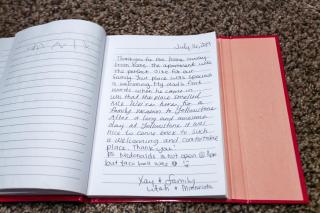 July 26, 2019
Thank you for the home away
from home. The apartment was
the perfect size for our
family. Your place was spacious
& welcoming. My dad's first
words when he came in
was that the place smelled
nice. We're here for a
family vacation to Yellowstone
After a long and awesome
day at Yellowstone it was
nice to come back to such
a welcoming and comfortable
place. Thank you!
McDonalds is not open ☹
but taco bell was
Xay & family
Utah & Minnesota